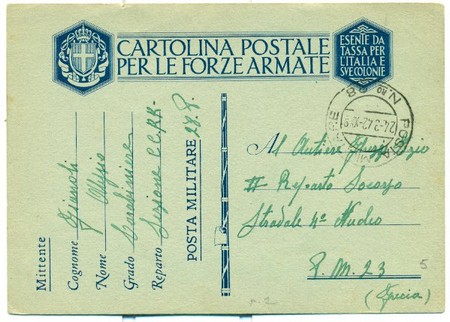 CARTOLINA POSTALE
PER LE FORZE ARMATE
ESENTE DA
TASSA PER
L'ITALIA E
SVE COLONIE
Mittente
Cognome
Nome
Grado Carabiniere
Reparto Sezione CC.RR.
POSTA MILITARE 27.P.
POSTA
No 88
Al Autiere
II Reparto Soccorso
Stradale 4º Nucleo
P.M. 23
(Grecia)
5